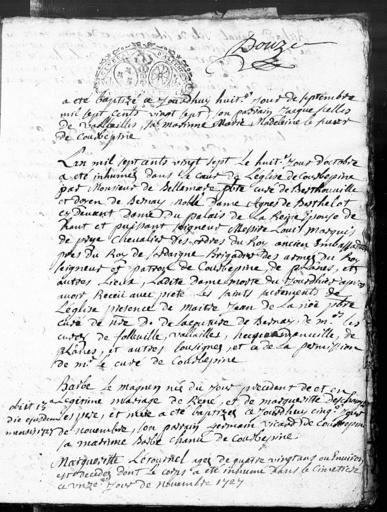 Douze
a eté Baptizé ce jourdhuy huit.e jour de septembre
mil sept cents vingt sept, son parain Jacque
de Vallailles, sa maraine Marie Madelaine le sueur
de Courbepine
L'an mil sept cents vingt sept le huit.e jour d'octobre
a eté inhumée dans le cœur de L'eglise de Courbepine
par Monsieur de Bellemare pbtre curé de Berthouville
et doyen de Bernay noble Dame Agnes de Berthelot
cy devant Dame du palais de la Reine Epouse de
haut et puissant seigneur Messire Louis Marquis
de prye Chevalier des ordres du Roy ancien Embassadeur
pres du Roy de sardaigne Brigadier des armes du Roy
seigneur et patron de Courbepine de planes, et
autres Lieux, Ladite Dame morte du
avoir Receu avec pieté Les saints sacrements de
L'eglise presence de Maitre Jean de la
curé de de la couture de Bernay, de m.rs les
curez de folleville, vallailles, de
planes, et autres sousignez et ce de la permission
de m.r le curé de Courbepine
Barbe Le magnen née du jour precedent de et en
Legitime mariage de René, et de marguerite
ses pere, et mere a eté baptizée ce jourdhuy cinq.e jour
de novembre, son parain germain vicaire de Courbepine
sa maraine Barbe Chanu de Courbepine
obiit 13
die ejusdem
mensis 1727
Marguerite Letournel agée de quatre vingts ans ou environ
est decedée dont le corps a eté inhumé dans le cimetiere
ce unze.e jour de novembre 1727